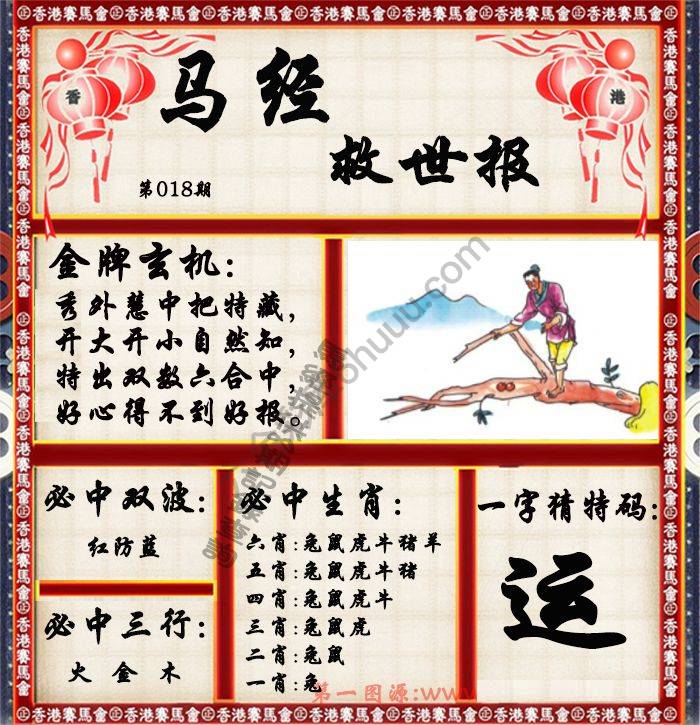 香港賽馬會 正 香港賽馬會 正 香港賽馬會 正 香港賽馬會 正 香港賽馬會 正 香港賽馬會
香
港
马经
救世报
第018期
金牌玄机:
秀外慧中把特藏,
开大开小自然知,
特出双数六合中,
好心得不到好报。
必中双波:
红防蓝
必中三行:
火 金 木
必中生肖:
六肖:兔鼠虎牛猪羊
五肖:兔鼠虎牛猪
四肖:兔鼠虎牛
三肖:兔鼠虎
二肖:兔鼠
一肖:兔
一字猜特码:
运
第一图源:www